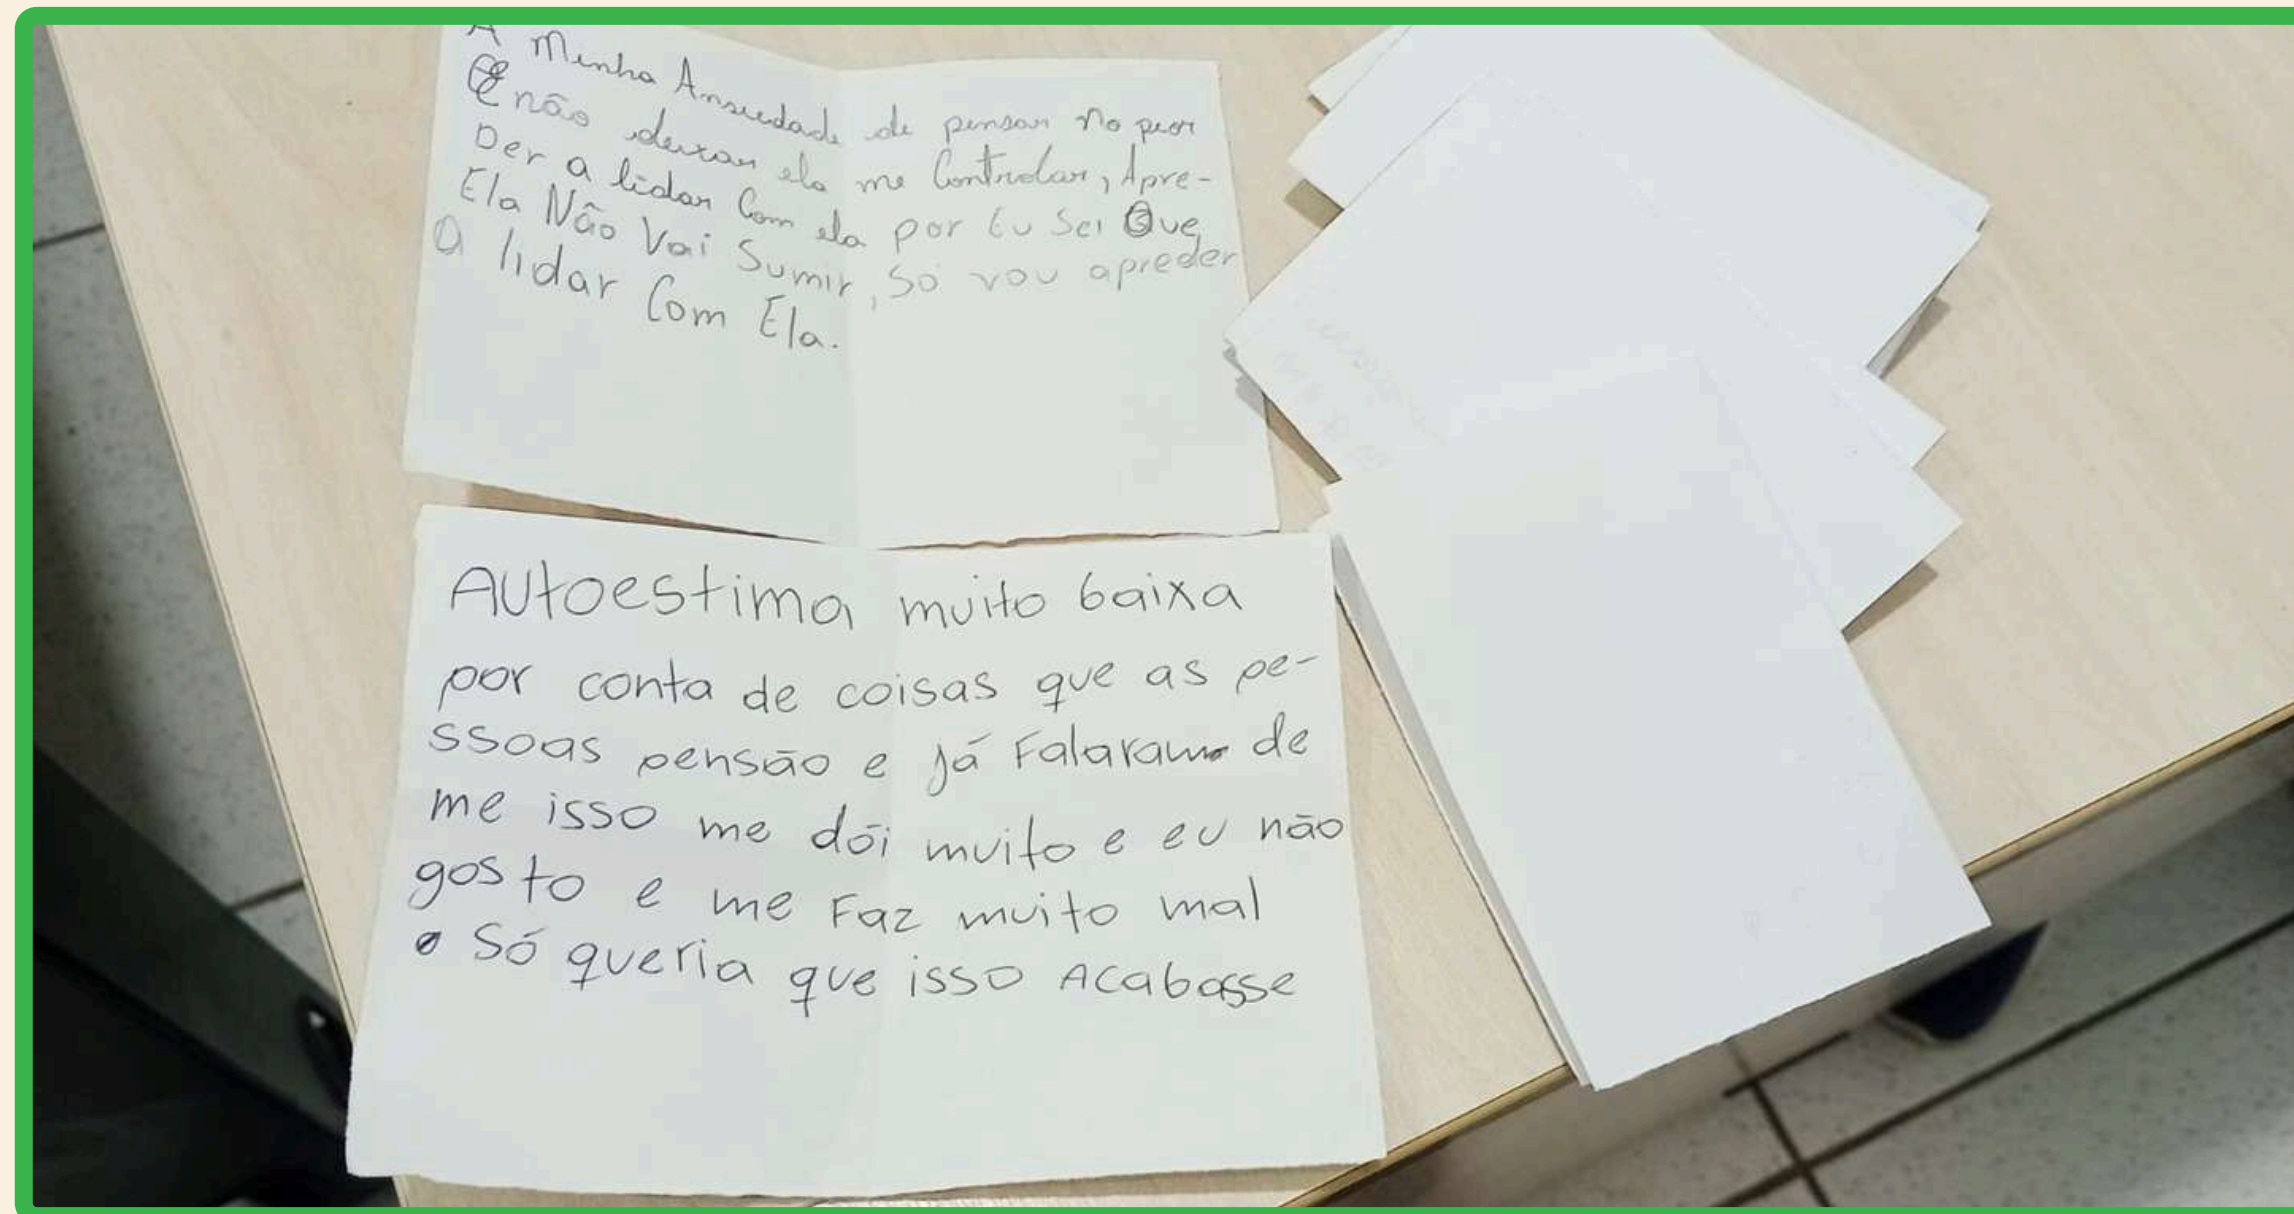 A Minha Ansiedade de pensar no pior
E não deixar ela me Controlar, Apre-
Der a lidar Com ela por Eu Sei Que
Ela Não Vai Sumir, Só vou apreder
a lidar Com Ela.
Autoestima muito baixa
por conta de coisas que as pe-
ssoas pensão e já Falaram de
me isso me dói muito e eu não
gosto e me Faz muito mal
Só queria que isso Acabasse